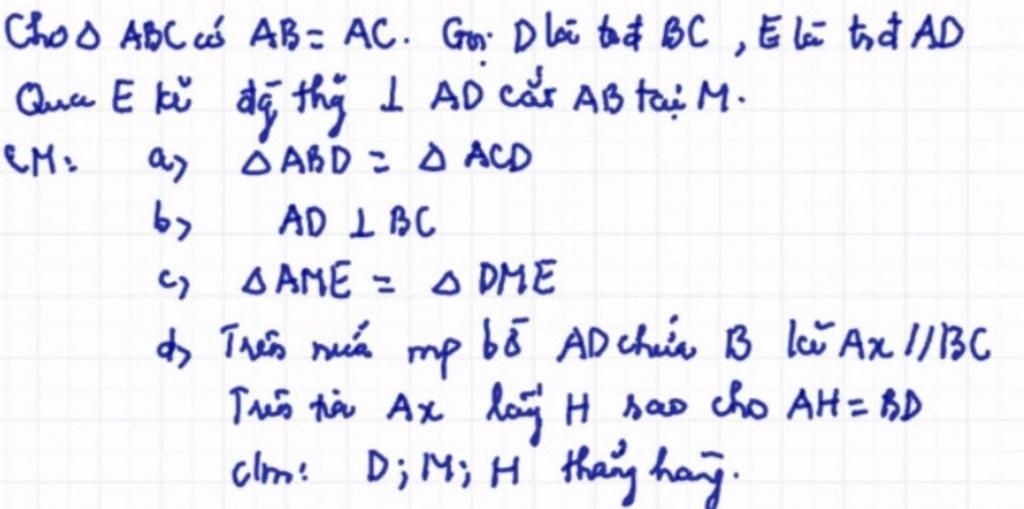 Cho Δ ABC có AB = AC. Gọi D là tđ BC, E là trđ AD
Qua E kẻ đg thg ⊥ AD cắt AB tại M.
CM: a) Δ ABD = Δ ACD
b) AD ⊥ BC
c) Δ AME = Δ DME
d) Trên nửa mp bờ AD chứa B kẻ Ax // BC
Trên tia Ax lấy H sao cho AH = BD
c/m: D; M; H thẳng hàng.